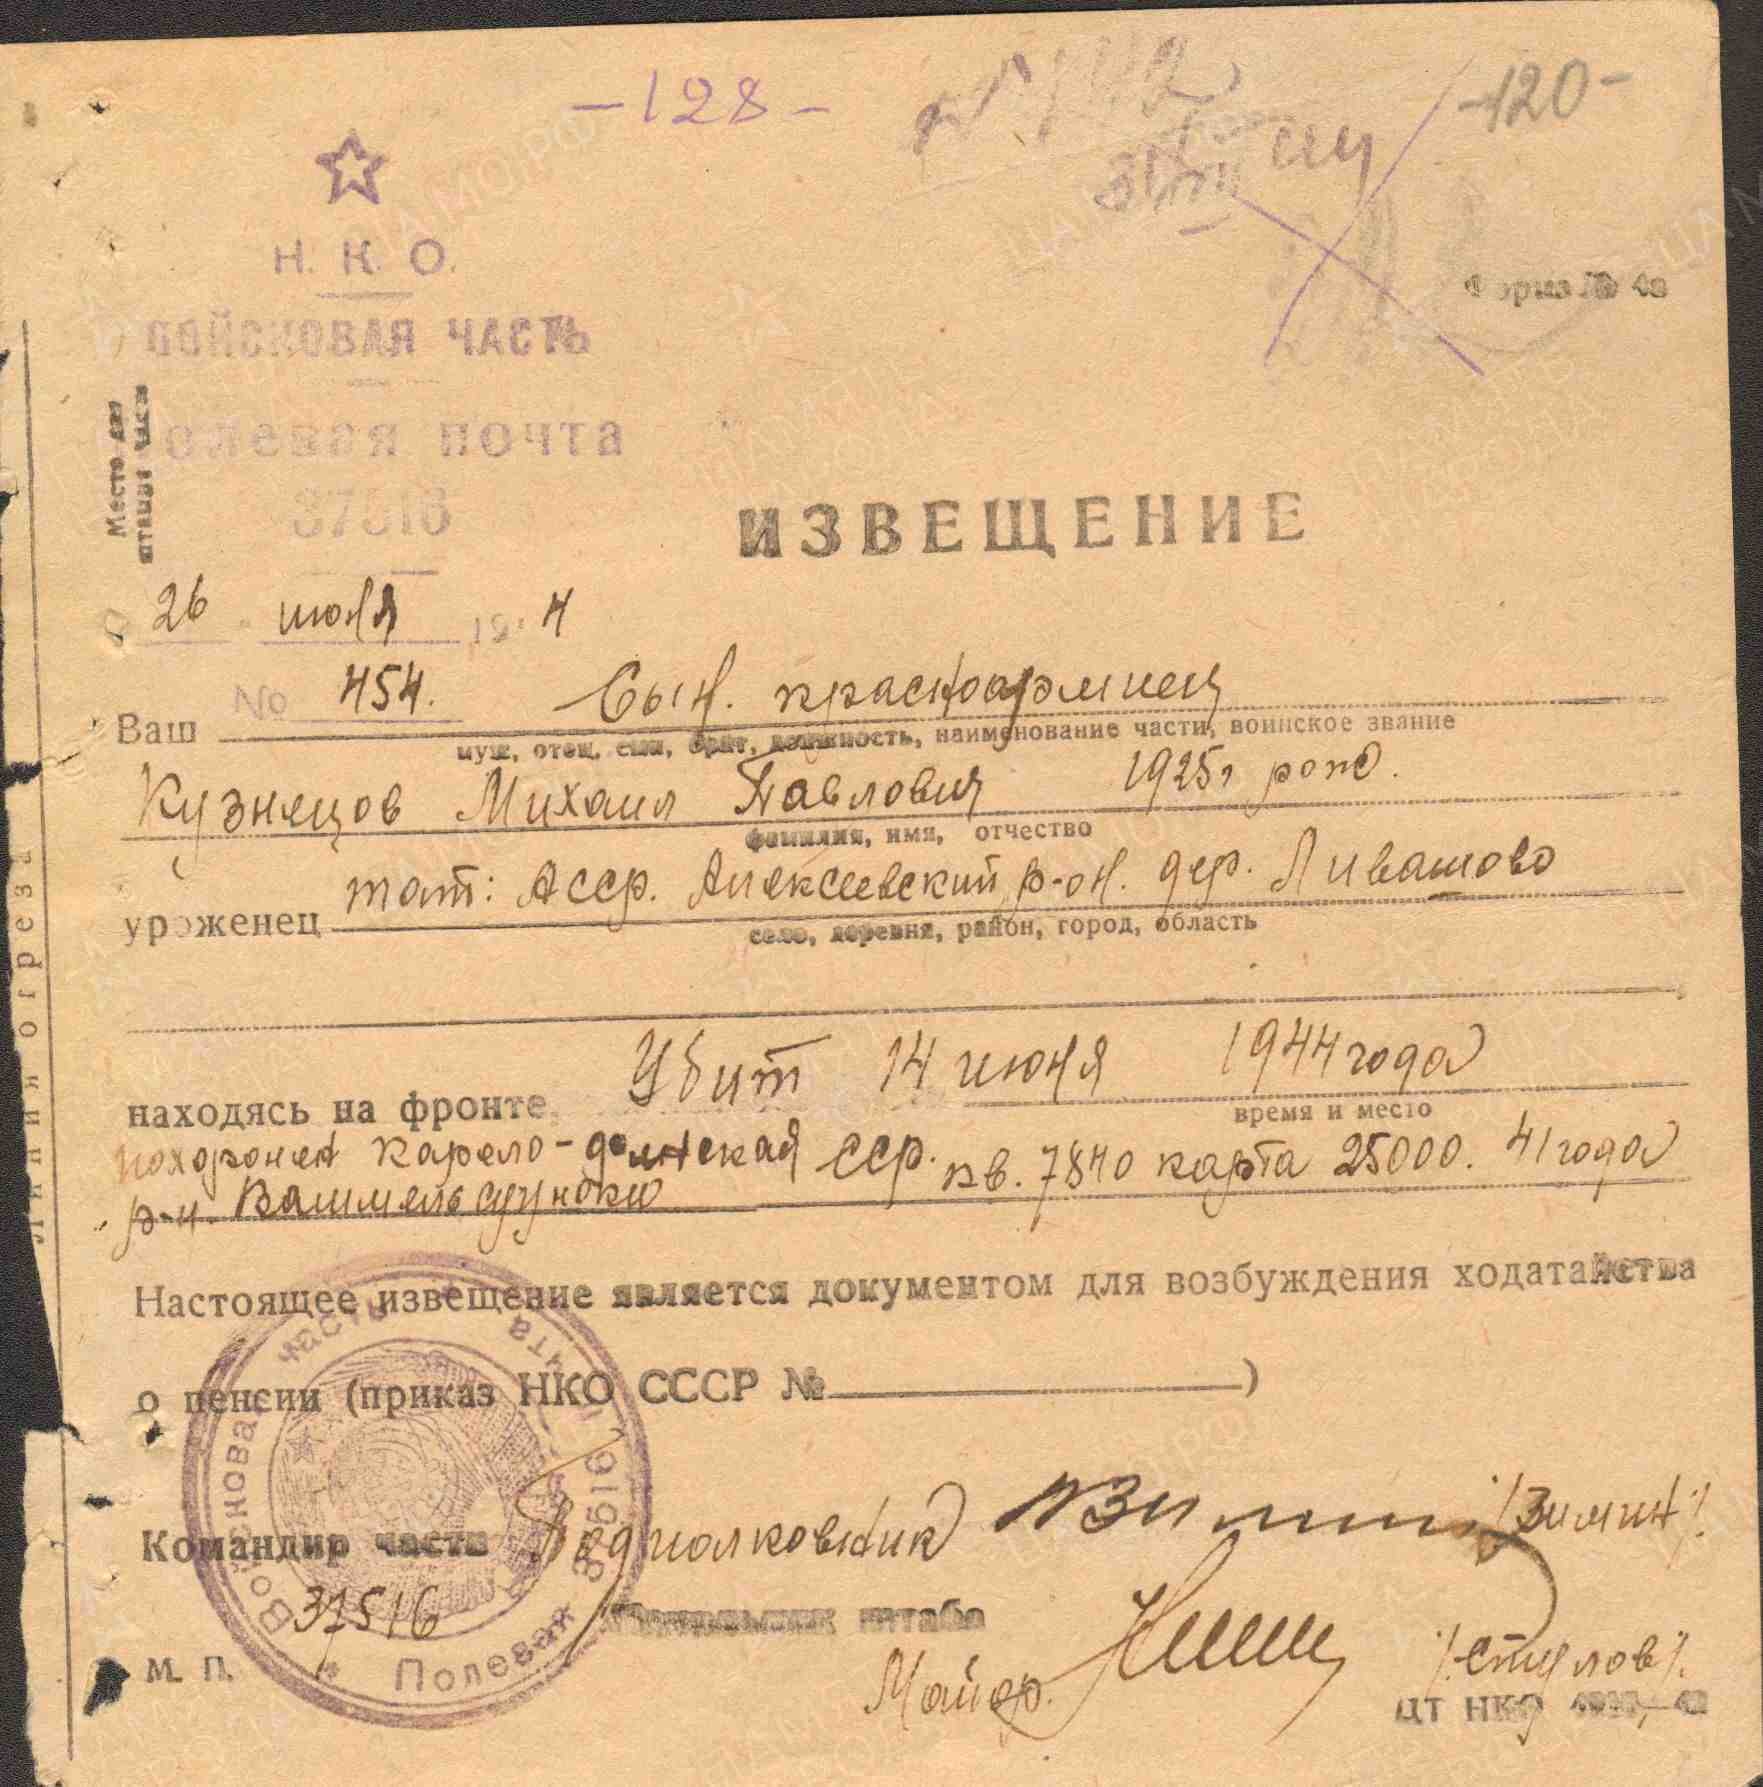 -128-
-120-
Н. К. О.
Форма № 4а
ВОЙСКОВАЯ ЧАСТЬ
Полевая почта
37516
Место для
штампа части
ИЗВЕЩЕНИЕ
26 июня 194 4
№ 454.
Ваш Сын. красноармиец
муж, отец, сын, брат, должность, наименование части, воинское звание
Кузнецов Михаил Павлович 1925г рожд.
фамилия, имя, отчество
уроженец тат: Асср. Алексеевский р-он. дер. Ливашово
село, деревня, район, город, область
находясь на фронте Убит 14 июня 1944 года
время и место
похоронен Карело-финская сср. кв. 7840 карта 25000. 41 года
р-н.
Настоящее извещение является документом для возбуждения ходатайства
о пенсии (приказ НКО СССР № )
Командир части Подполковник /Зимин/
37516
Начальник штаба
М. П.
Майор. /Стулов/
ЦТ НКО
Войсковая часть Полевая почта
Линия отреза